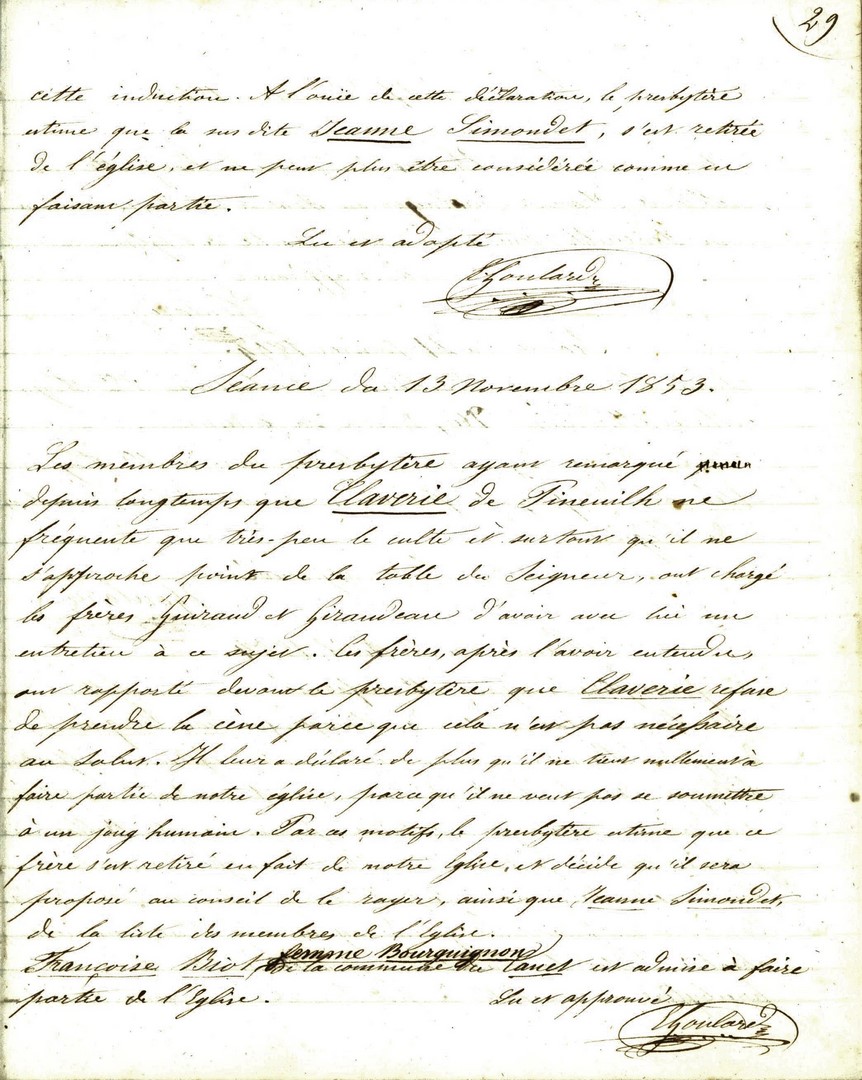 29
cette induction. A l'ouïe de cette déclaration, le presbytère
estime que la sus dite Jeanne Simondet, s'est retirée
de l'église, et ne peut plus être considérée comme en
faisant partie.
Lu et adopté
Goulard
Séance du 13 Novembre 1853.
Les membres du presbytère ayant remarqué
depuis longtemps que Claverie de Pineuilh ne
fréquente que très-peu le culte et surtout qu'il ne
s'approche point de la table du Seigneur, ont chargé
les frères Guiraud et Girandeau d'avoir avec lui un
entretien à ce sujet. Ces frères, après l'avoir entendu,
ont rapporté devant le presbytère que Claverie refuse
de prendre la cène parce que cela n'est pas nécessaire
au salut. Il leur a déclaré de plus qu'il ne tient nullement à
faire partie de notre église, parce qu'il ne veut pas se soumettre
à un joug humain. Par ces motifs, le presbytère estime que ce
frère s'est retiré en fait de notre Eglise, et décide qu'il sera
proposé au conseil de le rayer, ainsi que Jeanne Simondet,
de la liste des membres de l'Eglise.
femme Bourguignon
Françoise Biot de la commune du Canet est admise à faire
partie de l'Eglise.
Lu et approuvé
Goulard